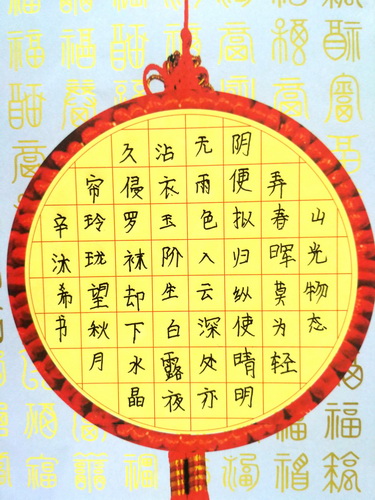 山光物态
弄春晖莫为轻
阴便拟归纵使晴明
无雨色入云深处亦
沾衣玉阶生白露夜
久侵罗袜却下水晶
帘玲珑望秋月
辛沐希书